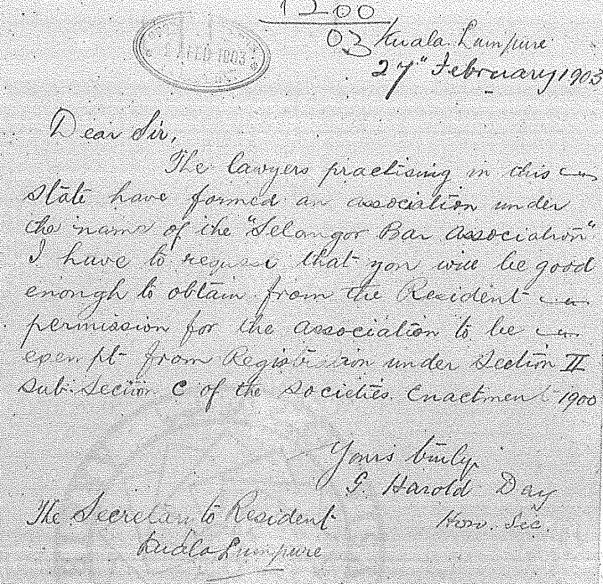 1200
03
FEB 1903
Kuala Lumpure
27" February 1903
Dear Sir,
The lawyers practising in this
State have formed an association under
the name of the "Selangor Bar Association"
I have to request that you will be good
enough to obtain from the Resident
permission for the association to be
exempt from Registration under Section II
Sub. Section C of the Societies Enactment 1900
Yours truly.
G. Harold Day
Hon. Sec.
The Secretary to Resident
Kuala Lumpure